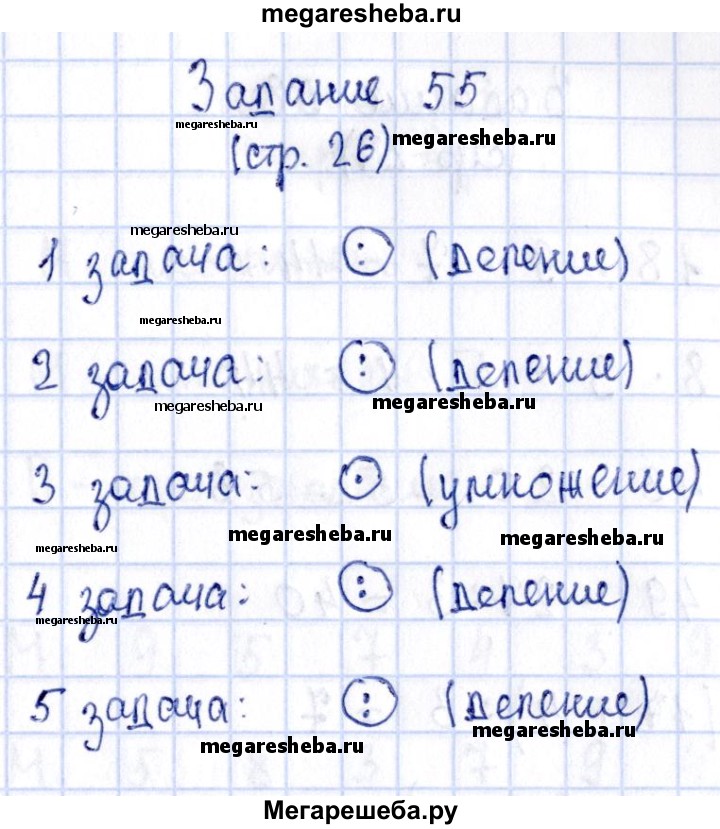 megaresheba.ru
Задание 55
megaresheba.ru
(стр. 26) megaresheba.ru
megaresheba.ru
1 задача: : (деление)
megaresheba.ru
2 задача: : (деление)
megaresheba.ru megaresheba.ru
3 задача: · (умножение)
megaresheba.ru megaresheba.ru
megaresheba.ru
4 задача: : (деление)
megaresheba.ru
5 задача: : (деление)
megaresheba.ru megaresheba.ru
Мегарешеба.ру